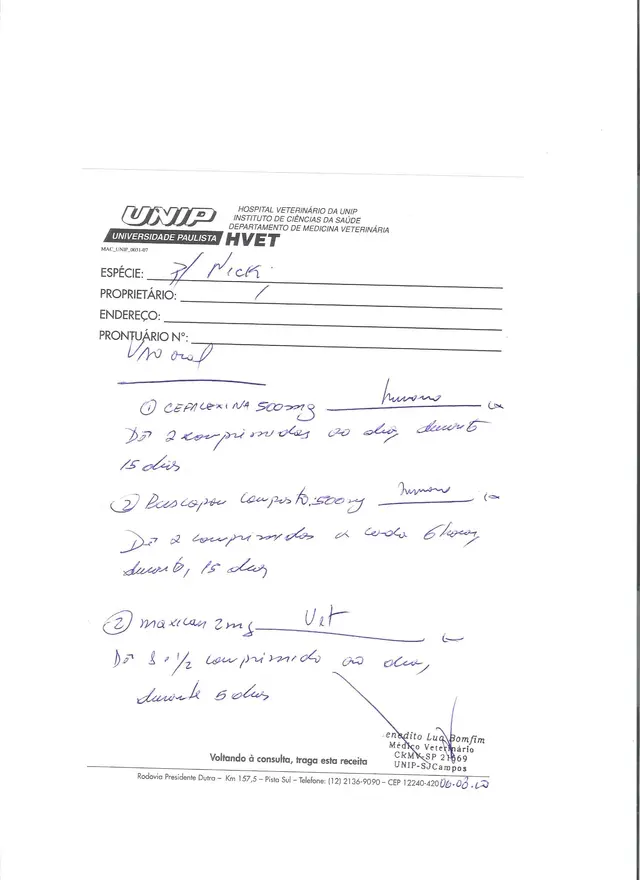 UNIP
UNIVERSIDADE PAULISTA
HVET
HOSPITAL VETERINÁRIO DA UNIP
INSTITUTO DE CIÊNCIAS DA SAÚDE
DEPARTAMENTO DE MEDICINA VETERINÁRIA
MAC_UNIP_0031-07
ESPÉCIE: P/ Nick
PROPRIETÁRIO: /
ENDEREÇO:
PRONTUÁRIO Nº:
Uso oral
① CEFALEXINA 500mg humano
Dê 2 comprimidos ao dia, durante
15 dias
② Buscopan composto 500mg humano
Dê 2 comprimidos a cada 6 horas,
durante, 15 dias
② maxican 2mg Vet
Dê 3 1/2 comprimido ao dia,
durante 5 dias
enedito Luq Bomfim
Médico Veterinário
CRMV-SP
UNIP-SJCampos
Voltando à consulta, traga esta receita
Rodovia Presidente Dutra – Km 157,5 – Pista Sul – Telefone: (12) 2136-9090 – CEP 12240-420